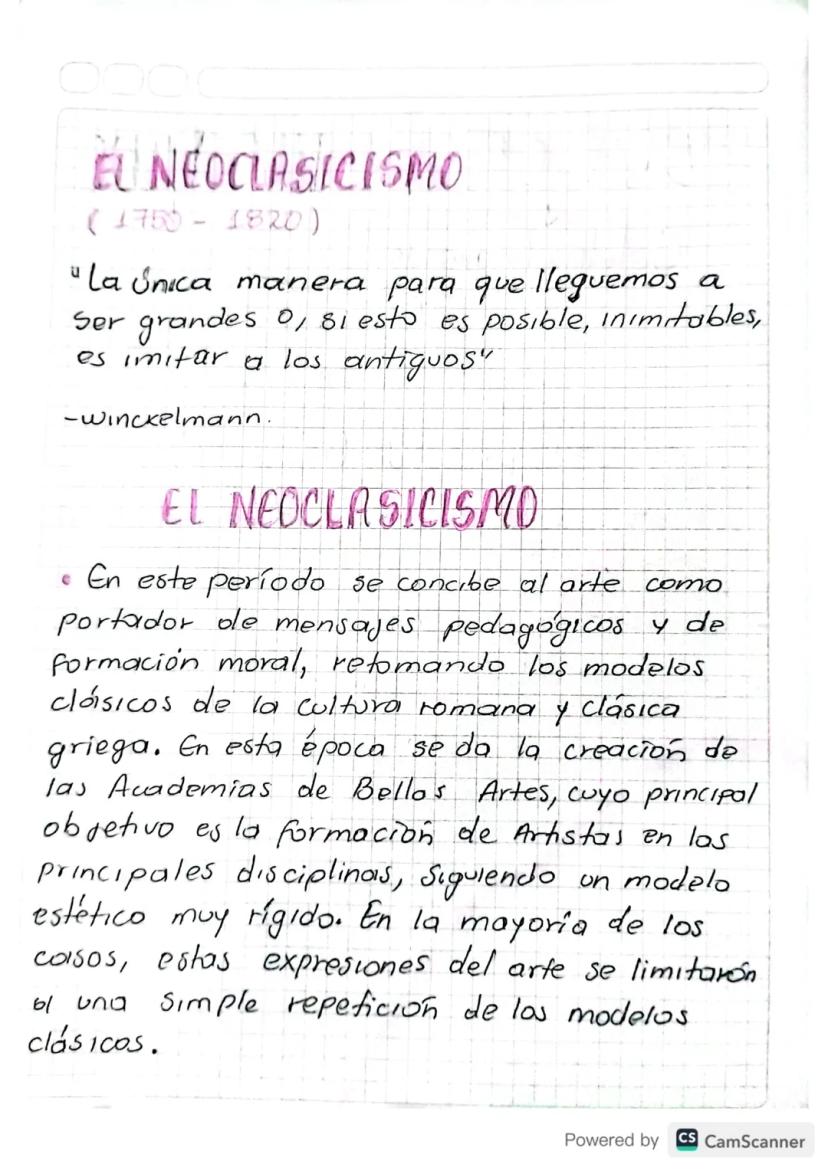 EL NEOCLASICISMO
(1750 - 1820)
"La única manera para que lleguemos a
ser grandes o, si esto es posible, inimitables,
es imitar a los antiguos"
-Winckelmann.
EL NEOCLASICISMO
• En este período se concibe al arte como
portador de mensajes pedagógicos y de
formación moral, retomando los modelos
clásicos de la cultura romana y clásica
griega. En esta época se da la creación de
las Academias de Bellas Artes, cuyo principal
objetivo es la formación de Artistas en las
principales disciplinas, siguiendo un modelo
estético muy rígido. En la mayoría de los
casos, estas expresiones del arte se limitarón
a una simple repetición de los modelos
clásicos.
Powered by CS CamScanner